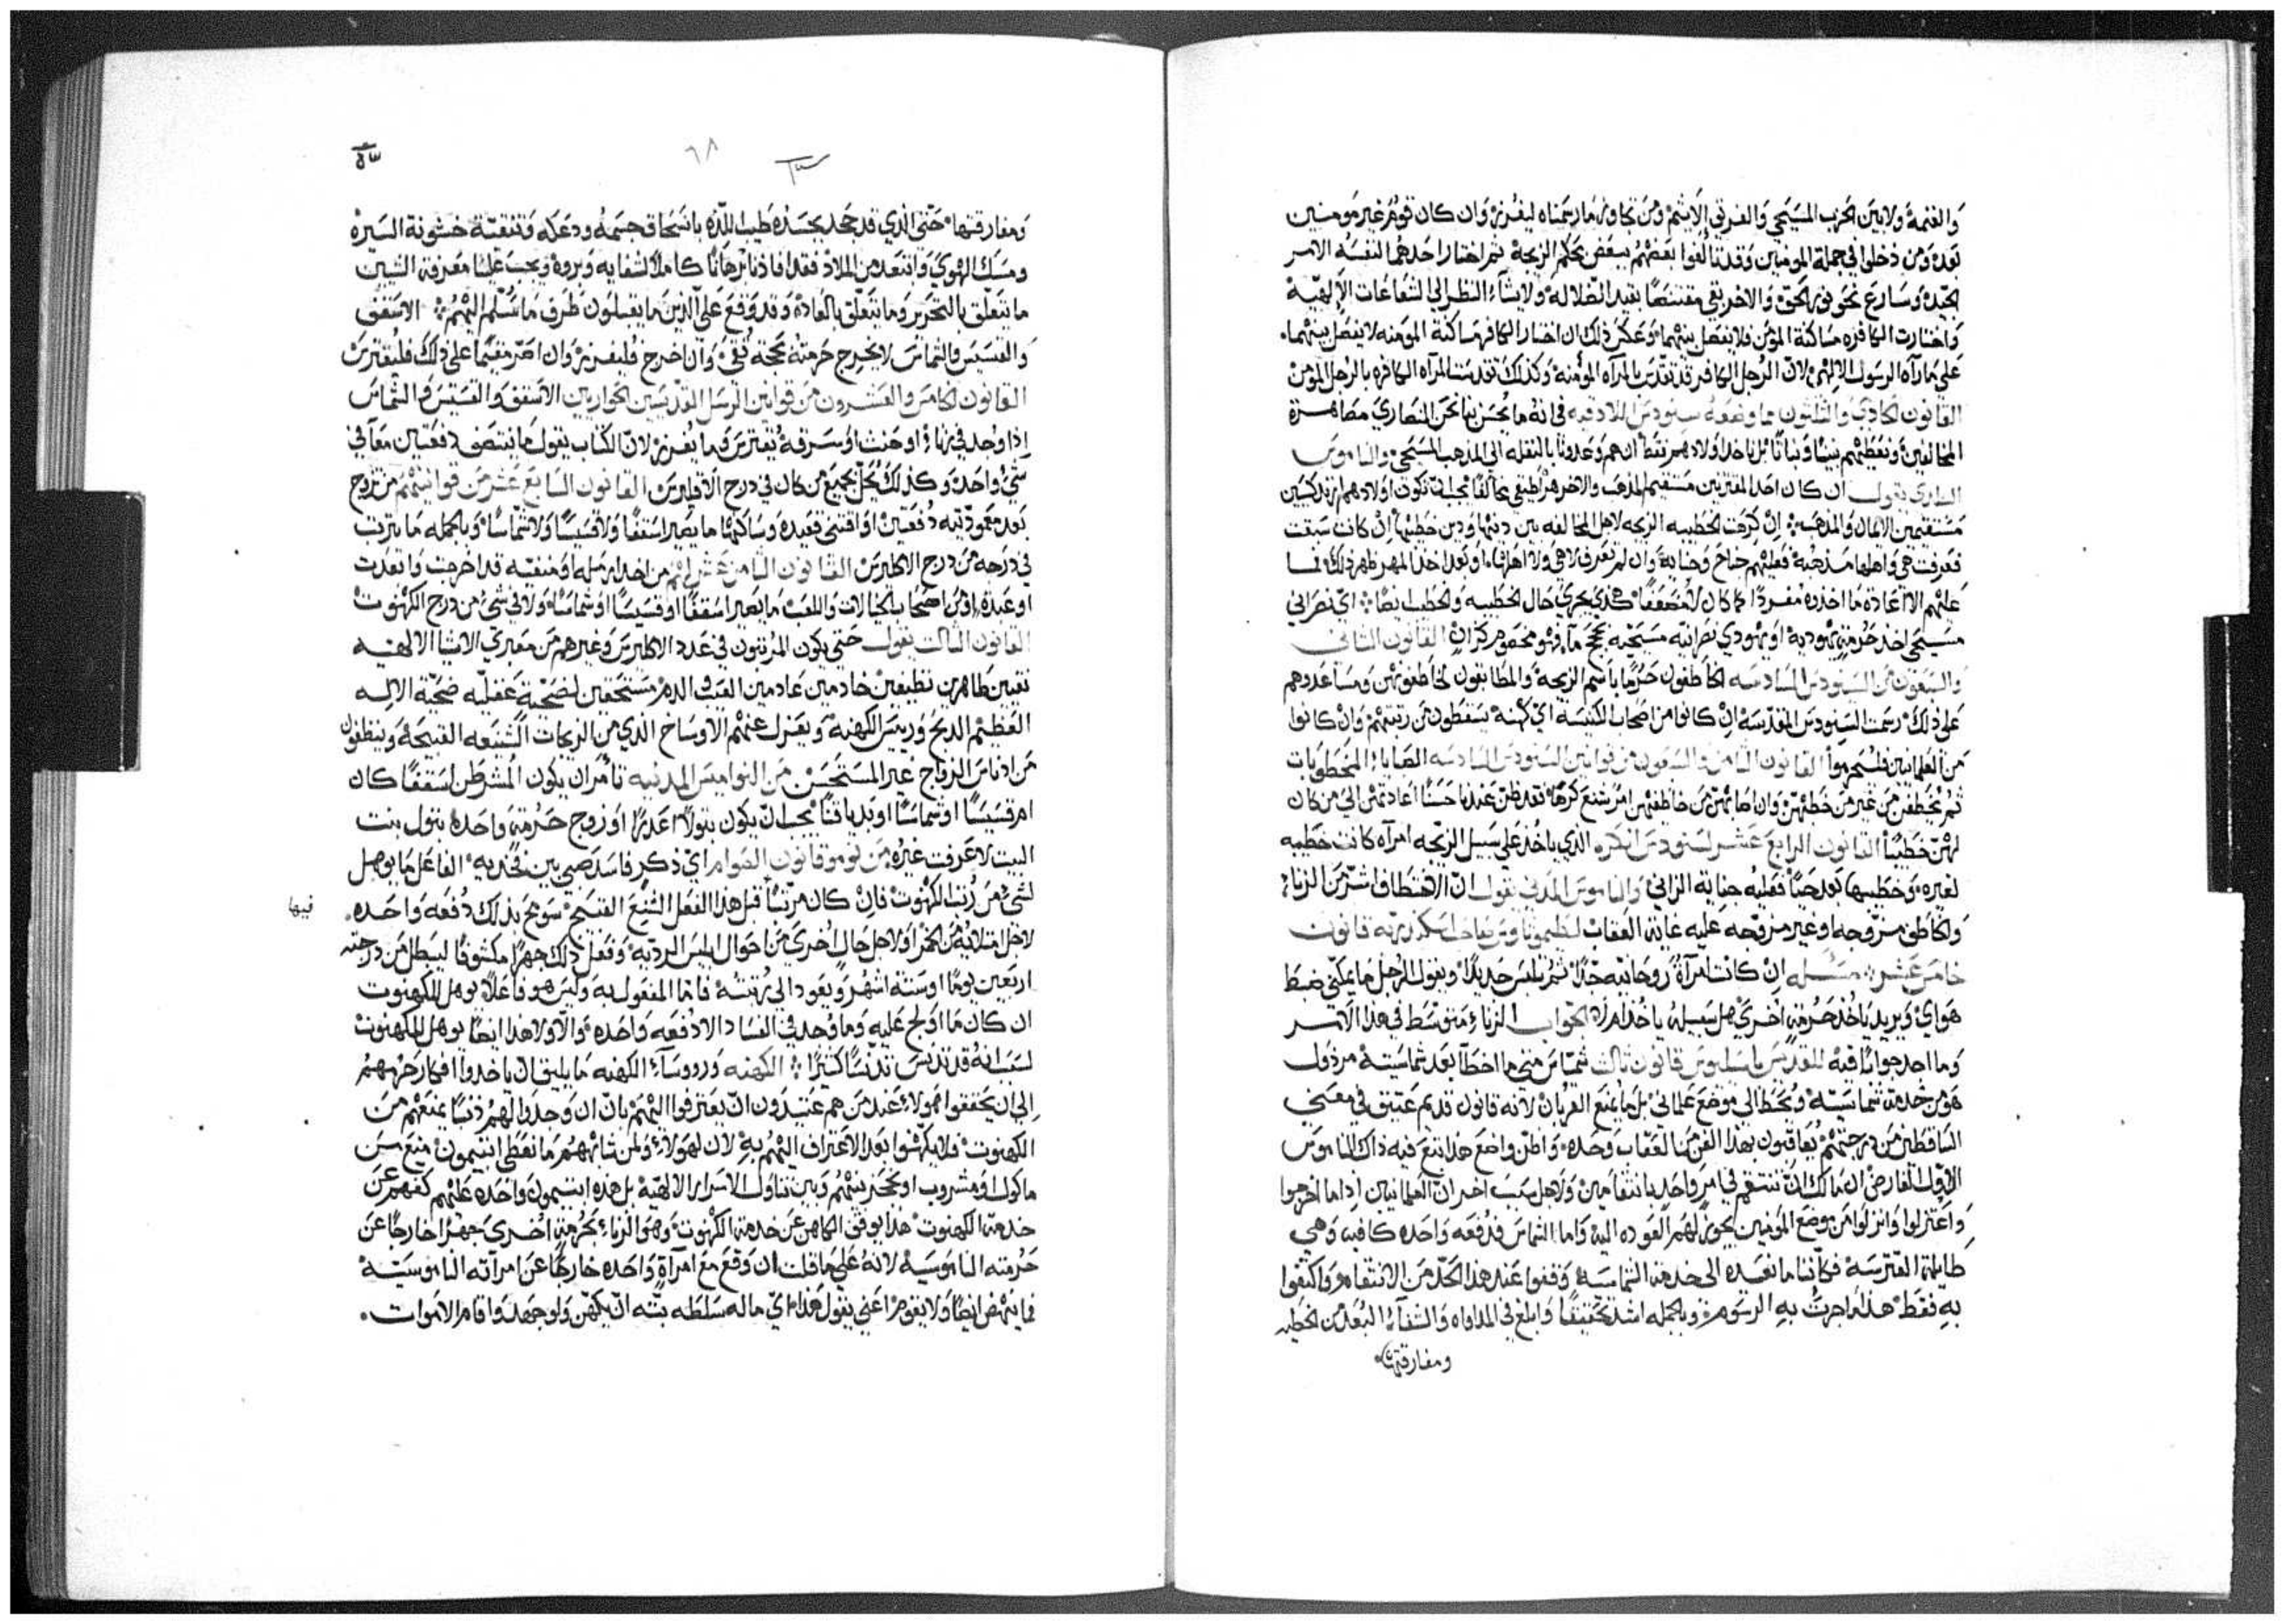 والغنمة ولا بين الحزب المسيحي والفريق الاثيم ومن تجاوز ما رسمناه ليفرز وان كان قوم غير مومنين
بعد ومن دخلوا في جملة المومنين وقد تالفوا بعضهم ببعض بحكم الزيجة ثم اختار احدهما لنفسه الامر
الجيد وسارع نحو نور الحق والاخر بقي مقتنصا بقيد الضلالة ولا يشاء النظر الي لشعاعات الالهية
واختارت الكافره مساكنة المومن فلا يفصل بينهما وعكس ذلك ان اختار الكافر مساكنة المومنه لا يفصل بينهما
علي ما رآه الرسول الالهي لان الرجل الكافر قد تقدس بالمرآه المومنه وكذلك تقدست المرآه الكافره بالرجل المومن
القانون الحادي والثلثون مما وضعه سينودس اللادقيه في انه ما يحسن بنا نحن النصاري مصاهرة
المخالفين ونعطيهم بنينا وبناتنا بل ناخذ اولادهم فقط ان هم وعدونا بالنقله الي المذهب المسيحي والناموس
يقول ان كان احد المقترنين مستقيم المذهب والاخر هراطيقي مخالفا يجب ان تكون اولادهم ارتدكسيين
مستقيمين الايمان والمذهب ان كرهت الخطيبه الزيجه لاجل المخالفه بين دينها ودين خطيبها ان كانت سبقت
فعرفت هي واهلها مذهبه فعليهم جناح وجناية وان لم تعرف لا هي ولا اهلها او بعد اخذ المهر ظهر ذلك فما
عليهم الا اعادة ما اخذوه مفردا كما كان لا مضعفا هكذي يجري حال الخطيبه والخطيب ايضا اي نصراني
مسيحي اخذ حرمة يهودية او يهودي نصرانيه مسيحيه القانون الثاني
والتسعون من السينودس السادسه الخاطفون حرما باسم الزيجة والمطابقون لخاطفوتهن ومساعدوهم
علي ذلك رسمت السينودس المقدسة ان كانوا من اصحاب الكنيسه اي كهنه يسقطون من رتبتهم وان كانوا
من العلمانيين فليحرموا القانون الثامن والتسعون من قوانين السينودس السادسه الصبايا المخطوبات
ثم يخطفن من غير من خطبهن وان اصابهن من خاطفيهن امر شنيع كرها فقد ظن عندنا حسنا اعادتهن الي من كان
لهن خطيبا القانون الرابع عشر لسينودس انكره الذي ياخذ علي سبيل الزيجه امرآه كانت خطيبه
لغيره وخطيبها بعد حيا فعليه جناية الزاني والناموس المدني يقول ان الاختطاف اشر من الزناء
والخاطف مزوجه او غير مزوجه عليه غاية العقاب لطيموثاوس بطاركة اسكندريه قانون
خامس عشر مسئله ان كانت امرآة روحانيه جدا ثم تلبس حديدا ويقول الرجل ما يمكني ضبط
هواي ويريد ياخذ حرمة اخري هل سبيله ياخذ ام لا الجواب الزناء متوسط في هذا الامر
وما اجد جوابا فيه للقديس باسيليوس قانون ثالث شماس متي ما اخطا بعد شماسيته مرذول
هو من خدمة شماسيته ويحط الي موضع علماني بل ما يمنع القربان لانه قانون قديم عتيق في معني
الساقطين من درجتهم يعاقبون بهذا الفن من العقاب وحده واظن واضع هذا تبع فيه ذاك الناموس
الاول الفارض ان مالك ان تنتقم في امر واحد بانتقامين ولاجل سبب اخر ان العلمانيين اذا ما اخرجوا
واعتزلوا وانزلوا من موضع المومنين يجوز لهم العوده اليه واما الشماس فدفعه واحده كافيه وهي
طايلة القترسة فكأننا ما نعيده الي خدمة الشماسة وقفوا عند هذا الحد من الانتقام واكتفوا
به فقط هذا ما اجرت به الرسوم وبالجمله اشد تحقيقا وابلغ في المداواه والشفاء البعد من الخطيه
ومفارقتها
٥٣
٦٨
ومفارقتها حتي الذي قد جحد بجسده طيب اللذه بانسحاق جسمه ودعكه وتنقيته خشونة السيره
ومسك الهوي وابتعد من الملاذ فقد افادنا برهانا كاملا لشفايه وبروه ويجب علينا معرفة الشيين
ما يتعلق بالتحرير وما يتعلق بالعاده وقد وقع علي الذين ما يقبلون طرف ما سلم اليهم الاسقف
والقسيس والشماس لا يخرج حرمته بحجة تقي وان اخرج فليفرز وان اصر مقيما علي ذلك فليقترس
القانون الخامس والعشرون من قوانين الرسل القديسين الحواريين الاسقف والقسيس والشماس
اذا وجد في زناء او حنث او سرقة يقترس وما يفرز لان الكتاب يقول ما ينتصف دفعتين معا في
شي واحد وكذلك يحل بجميع من كان في درج الاقليرس القانون السابع عشر من قوانينهم من تزوج
بعد معموديته دفعتين او اقتني قعيده وساكنها ما يصير اسقفا ولا قسيسا ولا شماسا وبالجمله ما يترتب
في درجه من درج الاكليرس القانون الثامن عشر لهم من اخذ ارمله او منفيه قد اخرجت وابعدت
او عبدة او من اصحاب الخيالات واللعب ما يصير اسقفا او قسيسا او شماسا ولا في شي من درج الكهنوت
القانون الثالث يقول حتي يكون المرتبون في عدد الاكليرس وغيرهم من معبري الاشيا الالهيه
نقيين طاهرين نظيفين خادمين عادمين العيب والدم مستحقين لضحية عقليه ضحية الاله
العظيم الذبح وربيس الكهنه ويعزل عنهم الاوساخ الذي من الزيجات الشنعه القبيحة وينظفون
من ادناس الزواج غير المستحسن من النواميس المدنيه تأمر ان يكون المشرطن اسقفا كان
ام قسيسا او شماسا او بدياقنا يجب ان يكون بتولا عذرا او زوج حرمة واحدة بتول بنت
البيت لا عرفت غيره من نوموقانون الصوام اي ذكر فاسد صبي بين فخديه الفاعل ما يوهل
لشي من رتب الكهنوت فان كان مرتبا قبل هذا الفعل الشنع القبيح سومح بذلك دفعه واحده
فيها
لاجل امتلايه من الخمر او لاجل حال اخري من احوال ابليس الرديه وفعل ذلك جهرا مكشوفا ليبطل من درجته
اربعين يوما او ستة اشهر ويعود الي رتبته فاما المفعول به وليس هو فاعلا يوهل للكهنوت
ان كان ما اولج عليه وما وجد في الفساد الا دفعه واحده والا ولا هذا ايضا يوهل للكهنوت
لسبب انه قد تدنس تدنسا كثيرا الكهنه وروساء الكهنه ما يليق ان ياخذوا افكار حرمهم
الي ان يحققوا هولاء عند من هم عتيدون ان يعترفوا اليهم بان ان وجدوا لهم ذنبا يمنعهم من
الكهنوت فلا يكهنوا بعد الاعتراف اليهم به لان لهولاء ولمن شابههم ما نعطي ابتيمون منيع من
ماكول او مشروب او نحجز بينهم وبين تناول الاسرار الالهية بل هذه ابتيمون واحده عليهم كفهم عن
خدمة الكهنوت هذا يوقف الكاهن عن خدمة الكهنوت وهو الزناء بحرمة اخري جهرا خارجا عن
حرمته الناموسية لانه علي ما قلت ان وقع مع امرآة واحده خارجا عن امرآته الناموسية
فما ينهض ايضا ولا يقوم اعني يقول هذا اي ما له سلطه بته ان يكهن ولو جهد واقام الاموات